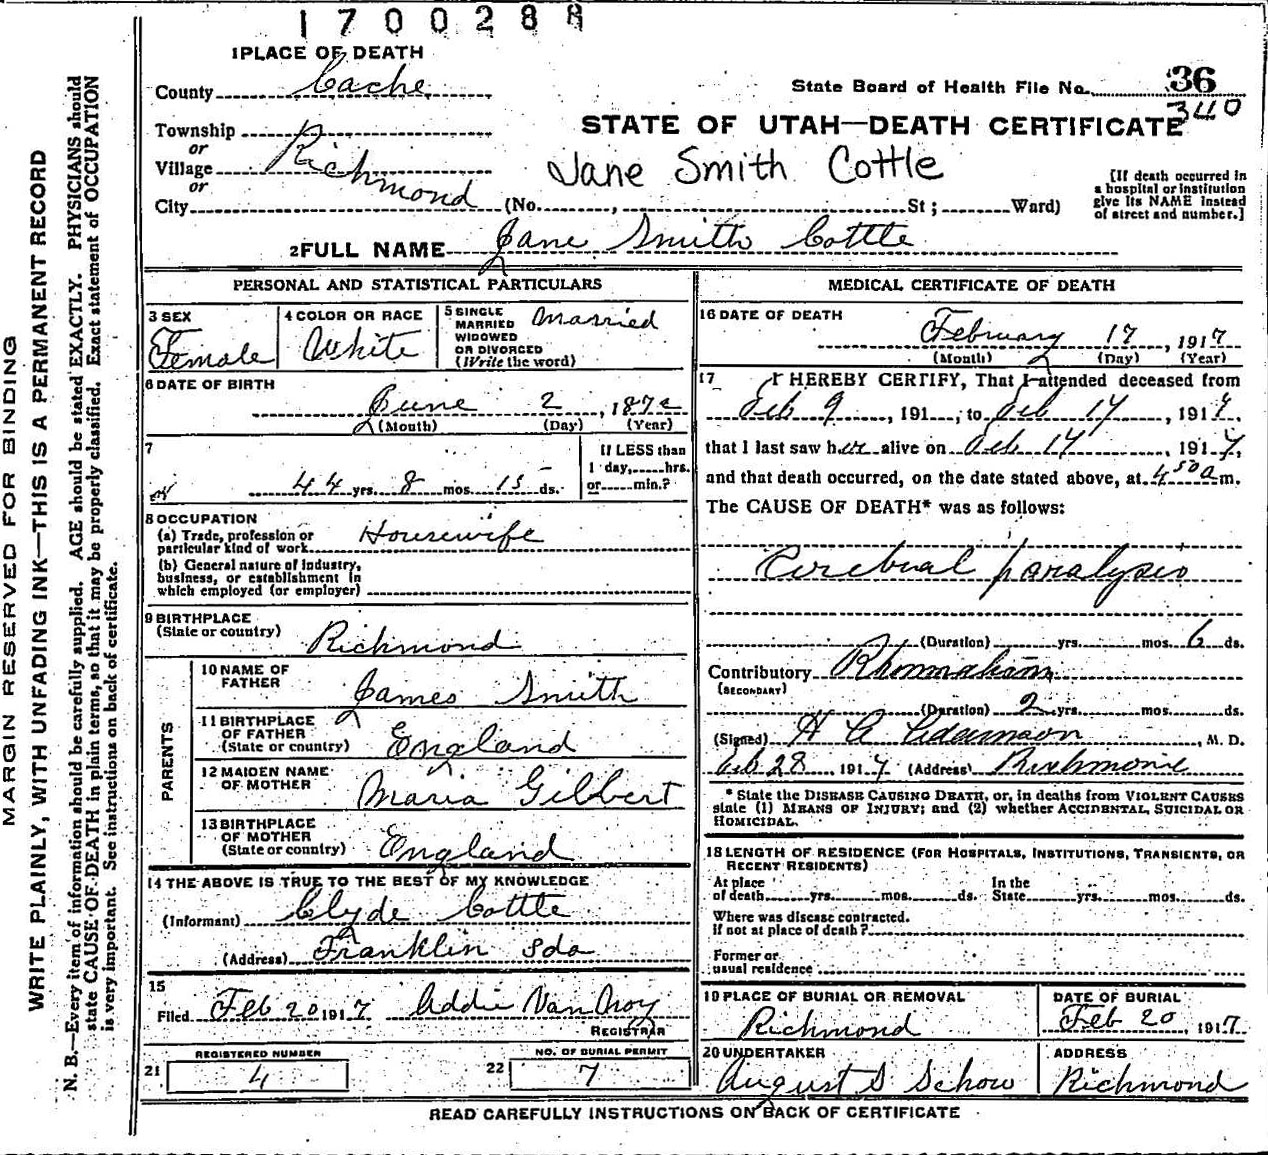 1700288
1 PLACE OF DEATH
County Cache
State Board of Health File No. 36
340
Township
or
Village Richmond
or
City (No. , St; Ward)
STATE OF UTAH—DEATH CERTIFICATE
Jane Smith Cottle
[If death occurred in
a hospital or institution
give its NAME instead
of street and number.]
2 FULL NAME Jane Smith Cottle
PERSONAL AND STATISTICAL PARTICULARS
3 SEX
Female
4 COLOR OR RACE
White
5 SINGLE
MARRIED
WIDOWED
OR DIVORCED
(Write the word)
Married
6 DATE OF BIRTH
June 2, 187
(Month) (Day) (Year)
7
44 yrs. 8 mos. 15 ds.
If LESS than
1 day, hrs.
or min.?
8 OCCUPATION
(a) Trade, profession or
particular kind of work Housewife
(b) General nature of industry,
business, or establishment in
which employed (or employer)
9 BIRTHPLACE
(State or country) Richmond
PARENTS
10 NAME OF
FATHER James Smith
11 BIRTHPLACE
OF FATHER
(State or country) England
12 MAIDEN NAME
OF MOTHER Maria Gilbert
13 BIRTHPLACE
OF MOTHER
(State or country) England
14 THE ABOVE IS TRUE TO THE BEST OF MY KNOWLEDGE
(Informant) Clyde Cottle
(Address) Franklin Ida
15
Filed Feb 20 1917 Addie Van Oroy
REGISTRAR
REGISTERED NUMBER
21 4
NO. OF BURIAL PERMIT
22 7
MEDICAL CERTIFICATE OF DEATH
16 DATE OF DEATH
February 17, 1917
(Month) (Day) (Year)
17 I HEREBY CERTIFY, That I attended deceased from
Feb 9, 191 , to Feb 17, 1917,
that I last saw her alive on Feb 17, 1917,
and that death occurred, on the date stated above, at 4 50 a m.
The CAUSE OF DEATH* was as follows:
Cerebral paralysis
(Duration) yrs. mos. 6 ds.
Contributory Rhumatism
(SECONDARY)
(Duration) 2 yrs. mos. ds.
(Signed) H A Adamson, M. D.
Feb 28, 1917 (Address) Richmond
* State the DISEASE CAUSING DEATH, or, in deaths from VIOLENT CAUSES
state (1) MEANS OF INJURY; and (2) whether ACCIDENTAL, SUICIDAL OR
HOMICIDAL.
18 LENGTH OF RESIDENCE (FOR HOSPITALS, INSTITUTIONS, TRANSIENTS, OR
RECENT RESIDENTS)
At place
of death yrs. mos. ds.
In the
State yrs. mos. ds.
Where was disease contracted.
if not at place of death?
Former or
usual residence
19 PLACE OF BURIAL OR REMOVAL
Richmond
DATE OF BURIAL
Feb 20, 1917
20 UNDERTAKER
August S Schow
ADDRESS
Richmond
READ CAREFULLY INSTRUCTIONS ON BACK OF CERTIFICATE
MARGIN RESERVED FOR BINDING
WRITE PLAINLY, WITH UNFADING INK—THIS IS A PERMANENT RECORD
N. B.—Every item of information should be carefully supplied. AGE should be stated EXACTLY. PHYSICIANS should
state CAUSE OF DEATH in plain terms, so that it may be properly classified. Exact statement of OCCUPATION
is very important. See instructions on back of certificate.